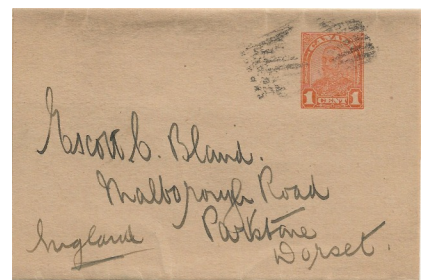 CANADA
1 CENT 1
Escott C. Bland.
Malborough Road
Parkstone
England
Dorset.